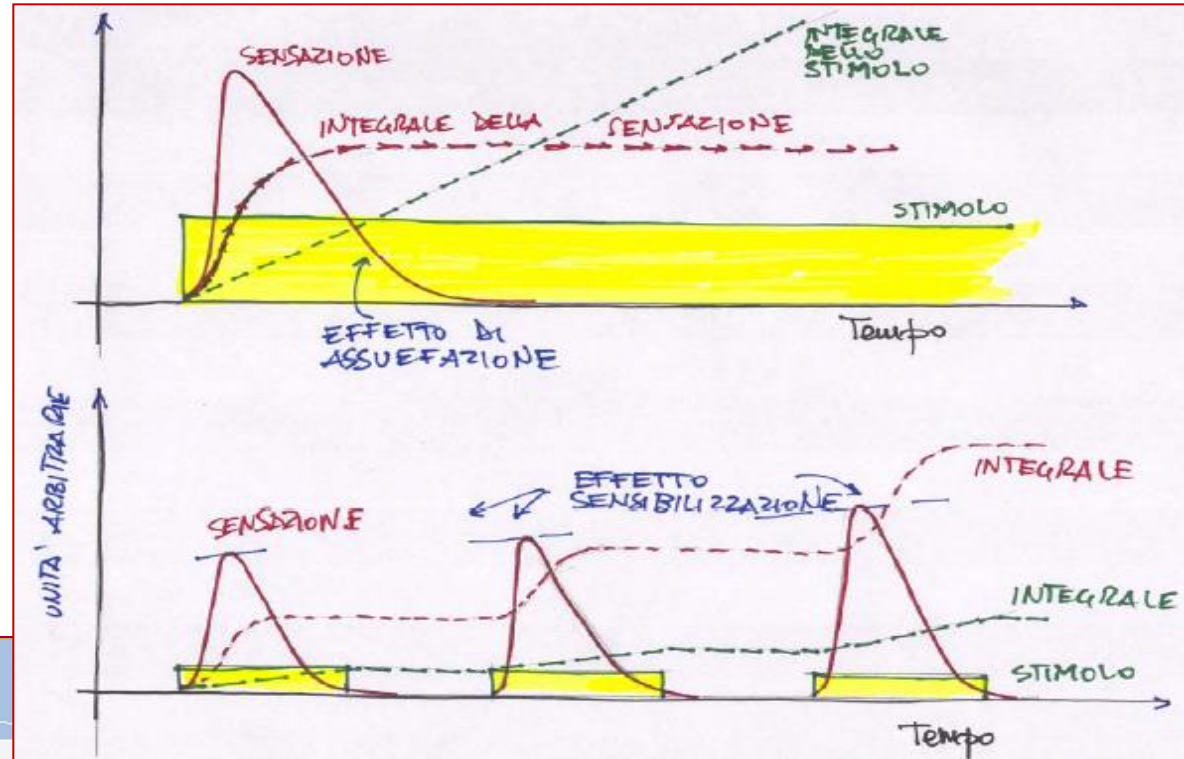 SENSAZIONE
INTEGRALE
DELLO
STIMOLO
INTEGRALE DELLA SENSAZIONE
STIMOLO
EFFETTO DI
ASSUEFAZIONE
Tempo
UNITA' ARBITRARIE
SENSAZIONE
EFFETTO
SENSIBILIZZAZIONE
INTEGRALE
INTEGRALE
STIMOLO
Tempo